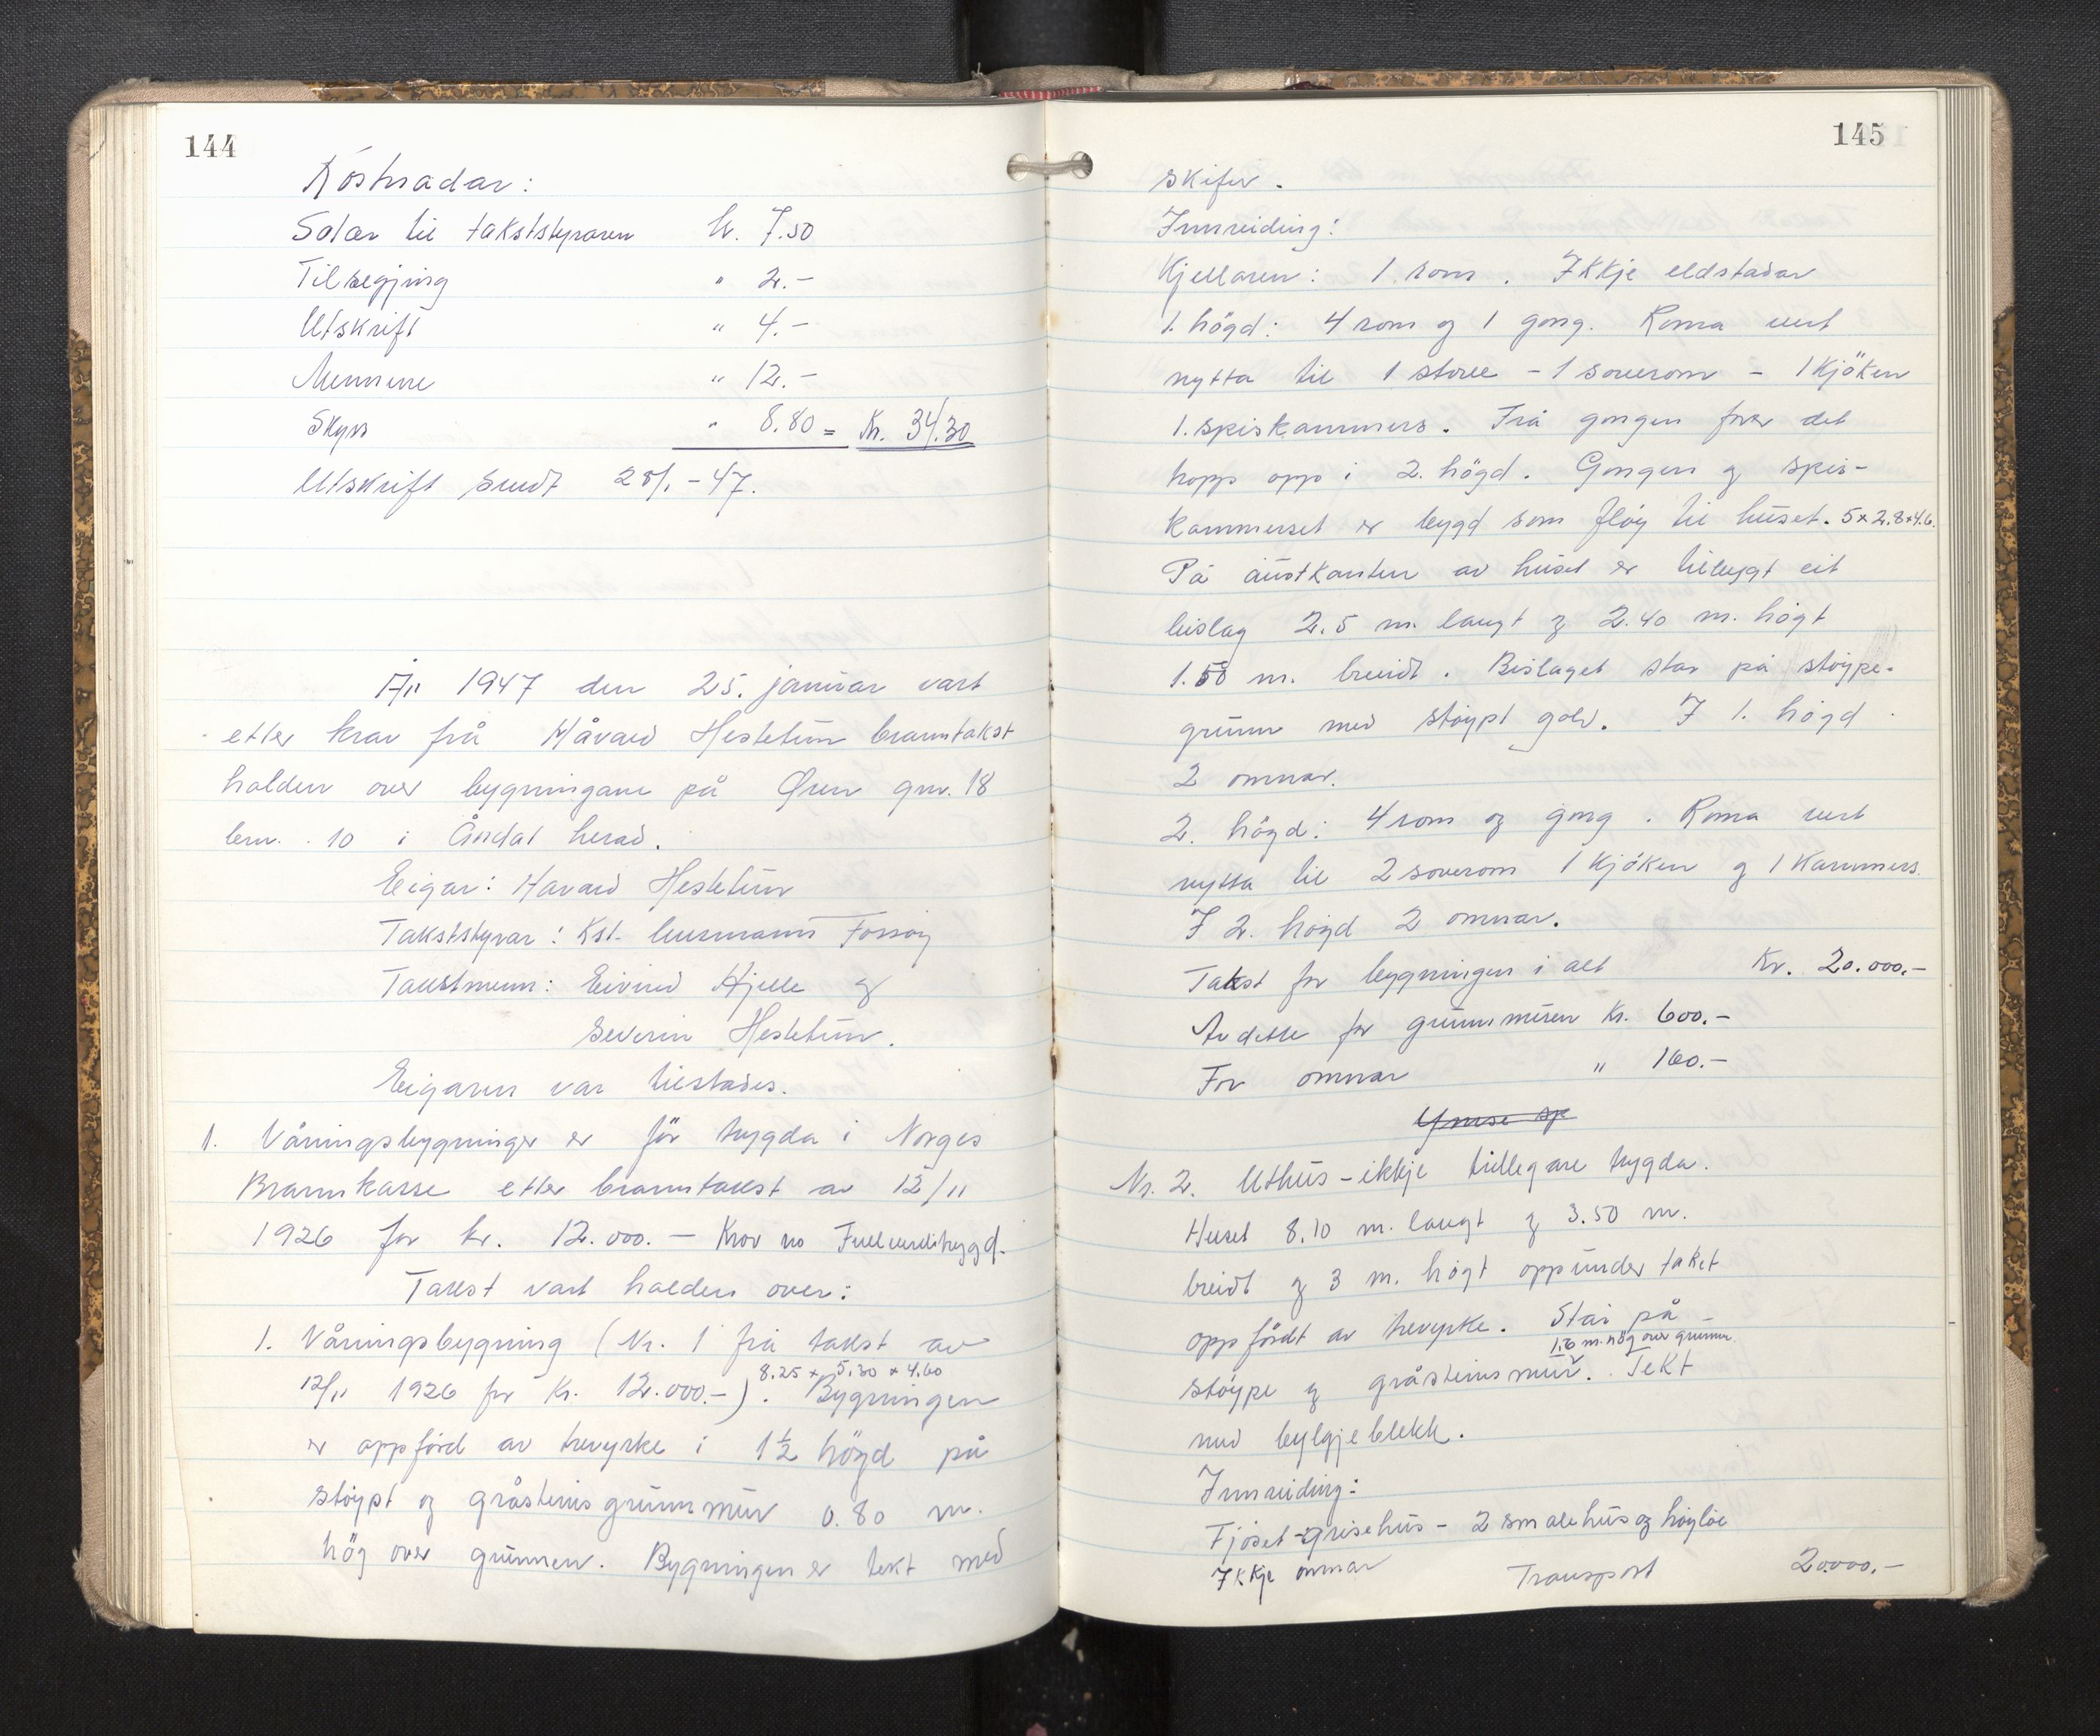 144
Kostnadar:
Salær til takststyraren kr. 7.50
Tilsegjing " 2.-
Utskrift " 4.-
Mennene " 12.-
Skyss " 8.80 = Kr. 34.30
Utskrift sendt 28/1-47.
År 1947 den 25. januar vart
etter krav frå Håvard Hestetun branntakst
halden over bygningane på Øren gnr. 18
bnr. 10 i Årdal herad.
Eigar: Havard Hestetun
Takststyrar: Kst. lensmann
Takstmenn: Eivind Hjelle og
Severin Hestetun.
Eigaren var tilstades.
1. Våningsbygningen er för trygda i Norges
Brannkasse etter branntakst av 12/11
1926 for kr. 12.000.- Krov no Fullverditrygd.
Takst vart halden over:
1. Våningsbygning (Nr. 1 frå takst av
8.25 x 5.30 x 4.60
12/11 1926 for Kr. 12.000.-). Bygningen
er oppförd av trevyrke i 1½ högd på
støypt og gråsteinsgrunnmur 0.80 m.
hög over grunnen. Bygningen er tekt med
145
skifer.
Innreiding:
Kjellaren: 1 rom. Ikkje eldstadar
1. högd: 4 rom og 1 gong. Roma vert
nytta til 1 stove - 1 soverom - 1 kjöken
1. spiskammers. Frå gongen förer det
tropp opp i 2. högd. Gongen og spis-
kammerset er bygd som fløy til huset. 5x2.8x4.6.
På austkanten av huset er tilbygt eit
bislag 2.5 m. langt og 2.40 m. högt
1.50 m. breidt. Bislaget står på støype-
grunn med støypt golv. I 1. högd
2 omnar.
2. högd: 4 rom og gong. Roma vert
nytta til 2 soverom 1 kjöken og 1 kammers.
I 2. högd 2 omnar.
Takst for bygningen i alt Kr. 20.000.-
Av dette for grunnmuren Kr. 600.-
For omnar " 160.-
Ymse sp
Nr. 2. Uthus - ikkje tidlegare trygda.
Huset 8.10 m. langt og 3.50 m.
breidt og 3 m. högt oppunder taket
oppfördt av trevyrke. Står på
1.6 m. hög over grunn.
støype og gråsteinsmur. Tekt
med bylgjeblekk.
Innreiding:
Fjöset - grisehus - 2 smalehus og høyløe
Ikkje omnar
Transport 20.000.-